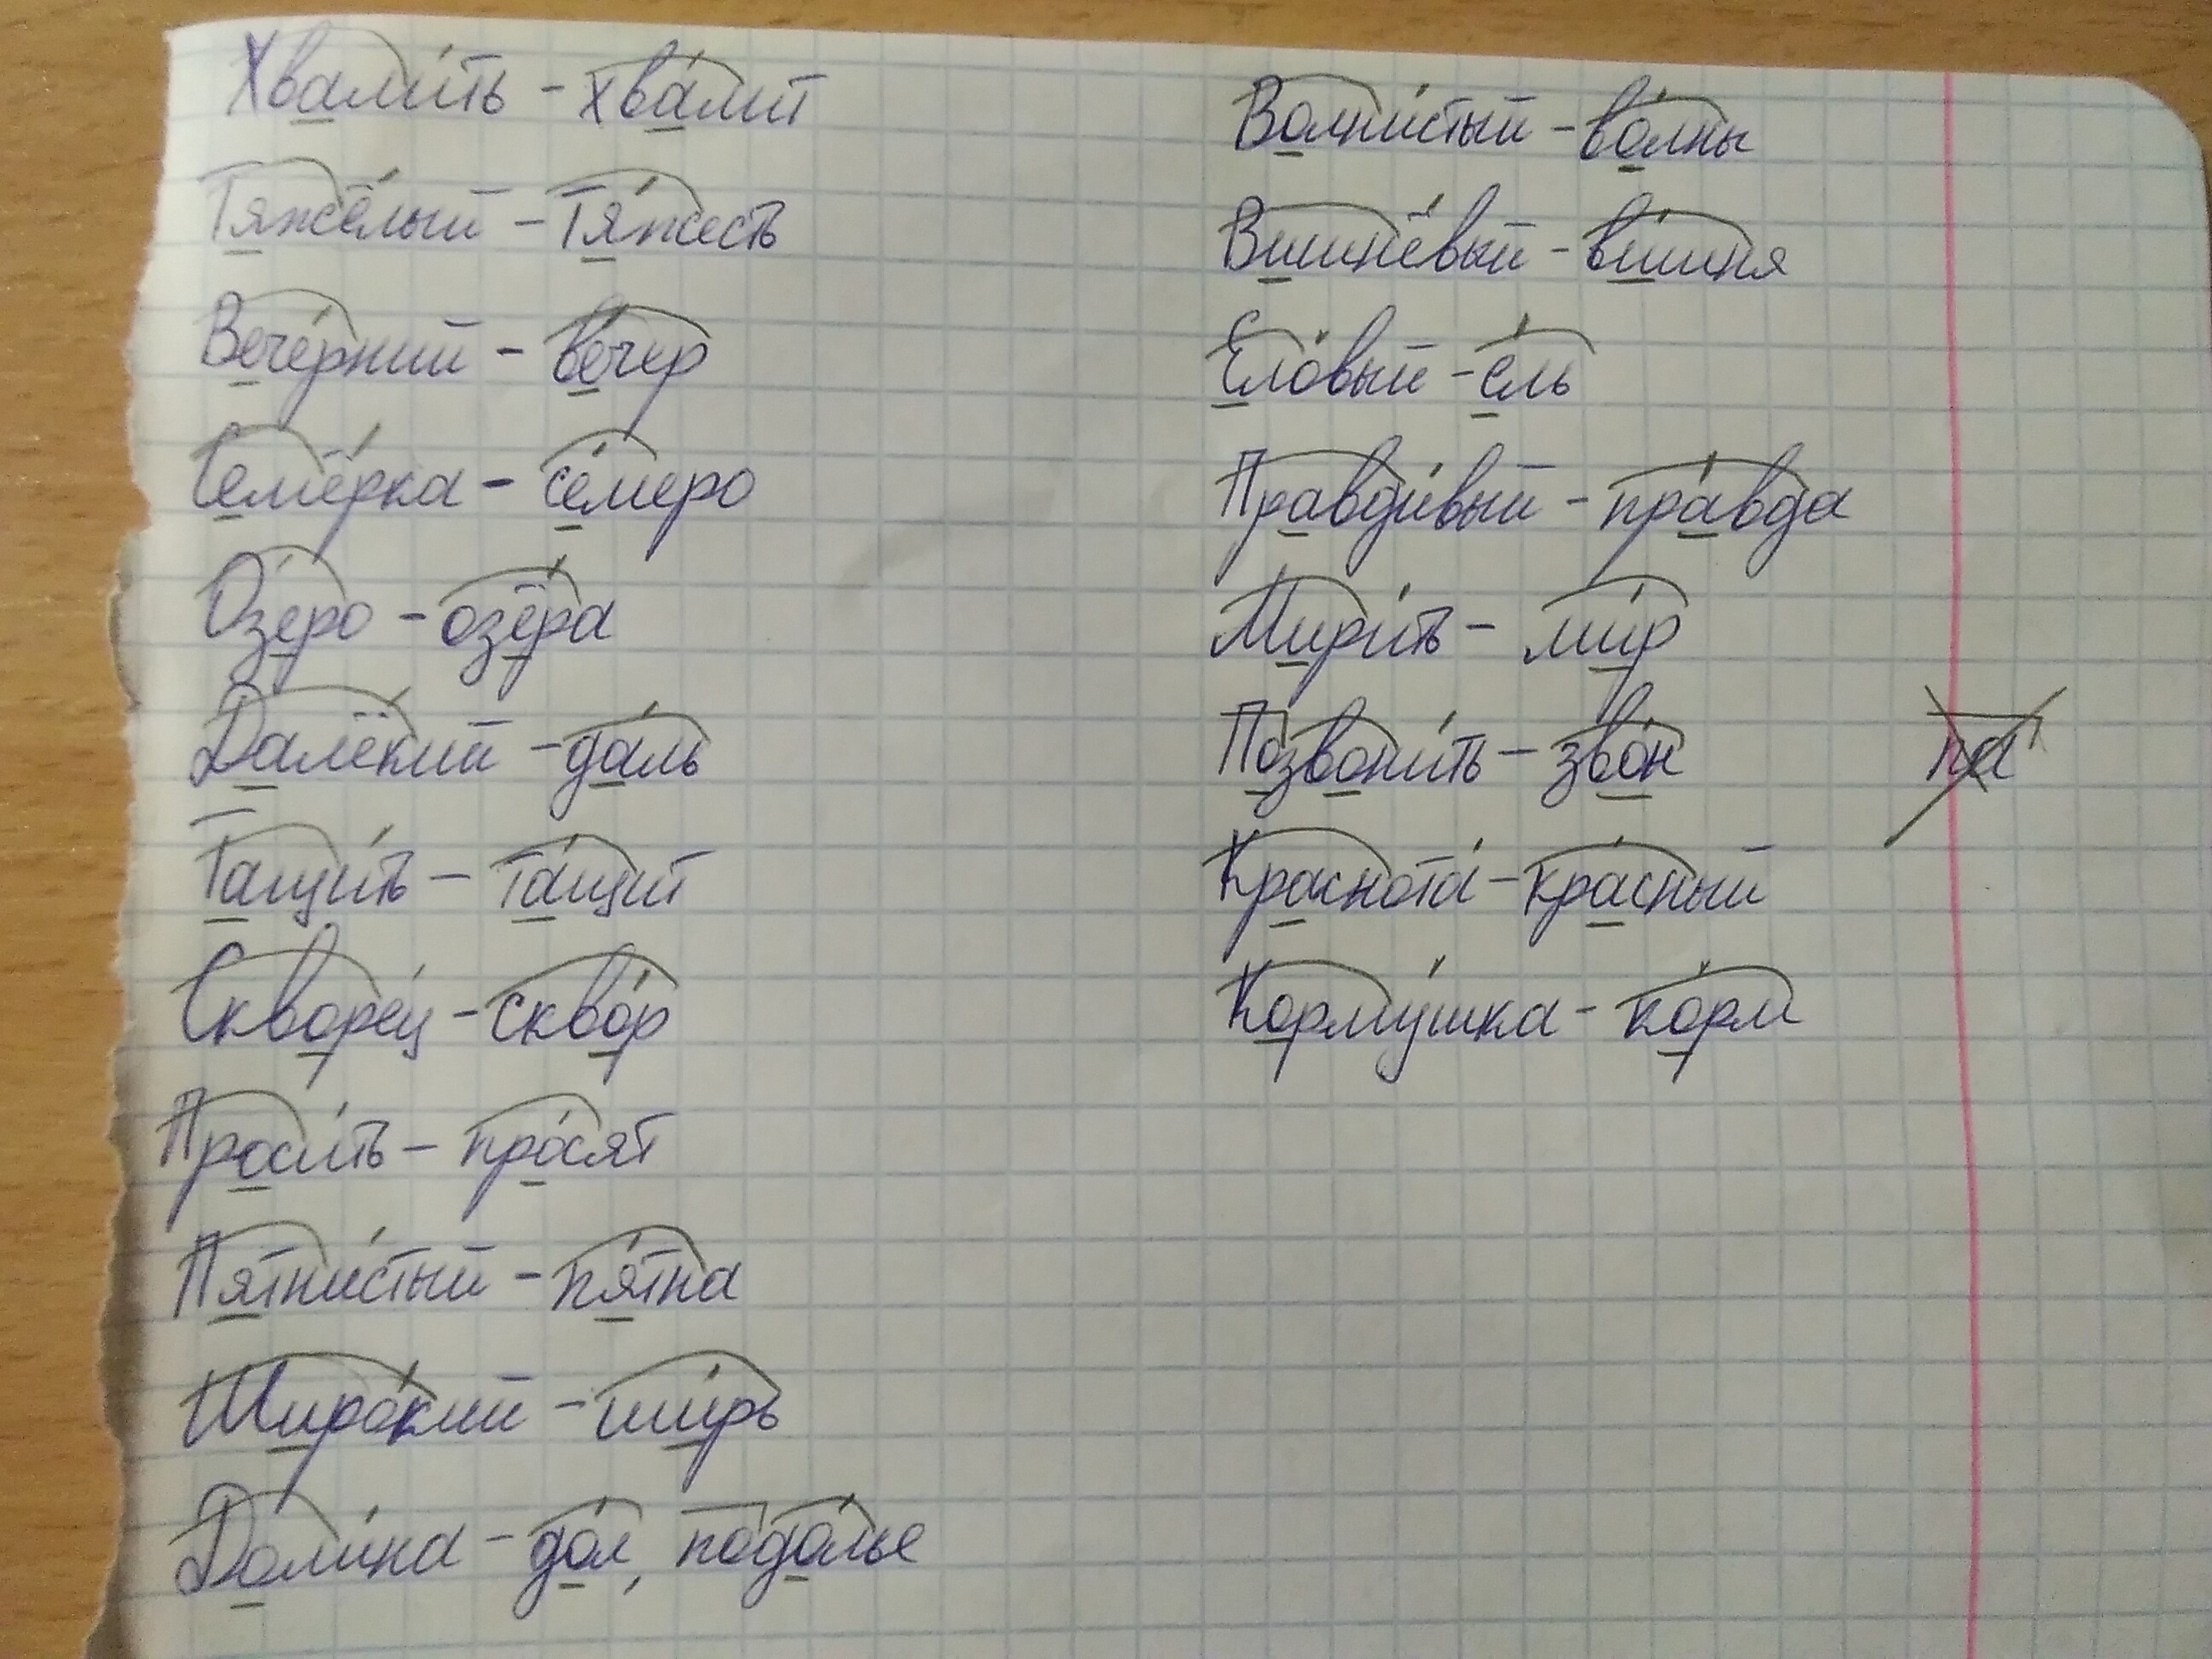 Хвали́ть - хва́лит
Тяжёлый - тя́жесть
Вече́рний - ве́чер
Семёрка - се́меро
О́зеро - озёра
Далёкий - да́ль
Тащи́ть - та́щит
Скворе́ц - скво́р
Проси́ть - про́сят
Пятни́стый - пя́тна
Широ́кий - ши́рь
Доли́на - до́л, подо́лье
Волни́стый - во́лны
Вишнёвый - ви́шня
Ело́вый - е́ль
Правди́вый - пра́вда
Мири́ть - ми́р
Позвони́ть - зво́н
Краснота́ - кра́сный
Корму́шка - ко́рм